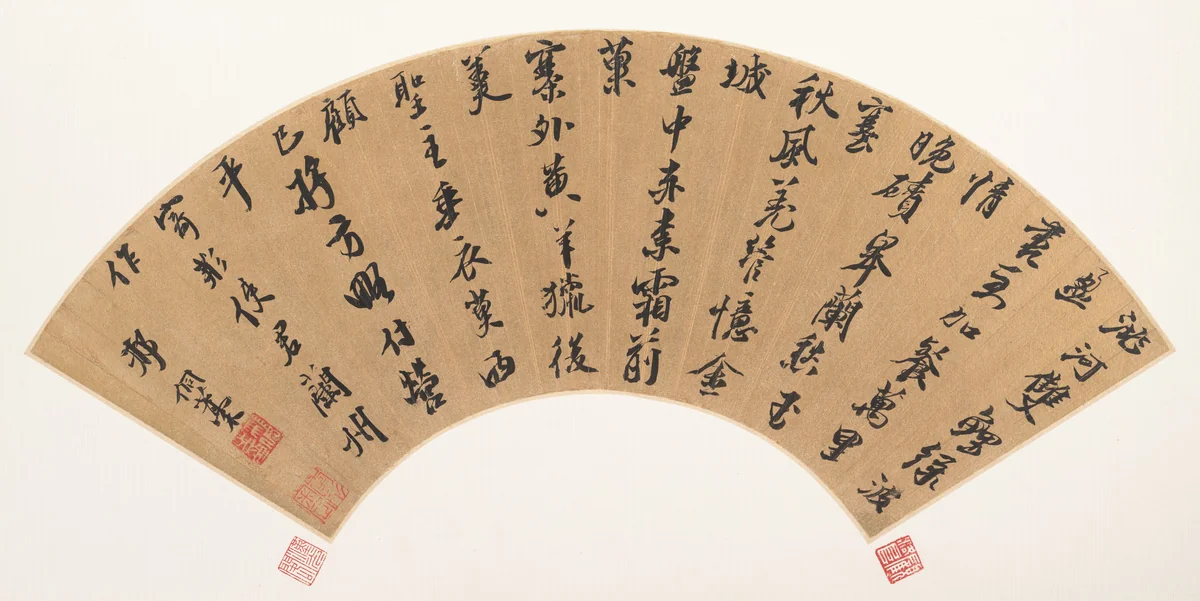 洮河雙鯉綠波
盈
裏加餐萬里
情
晚磧皋蘭愁玉
塞
秋風羌管憶金
城
盤中赤棗霜前
菓
寨外黃羊獵後
羹
聖主垂衣莫西
顧
已將方略付營
平
寄彭使君蘭州
作
邢侗稾